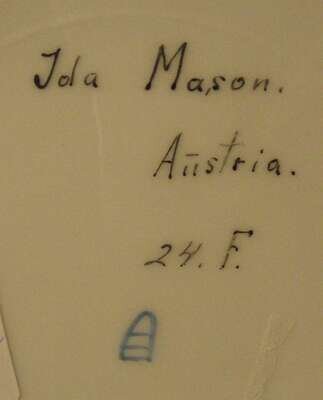 Ida Mason.
Aūstria.
24. F.